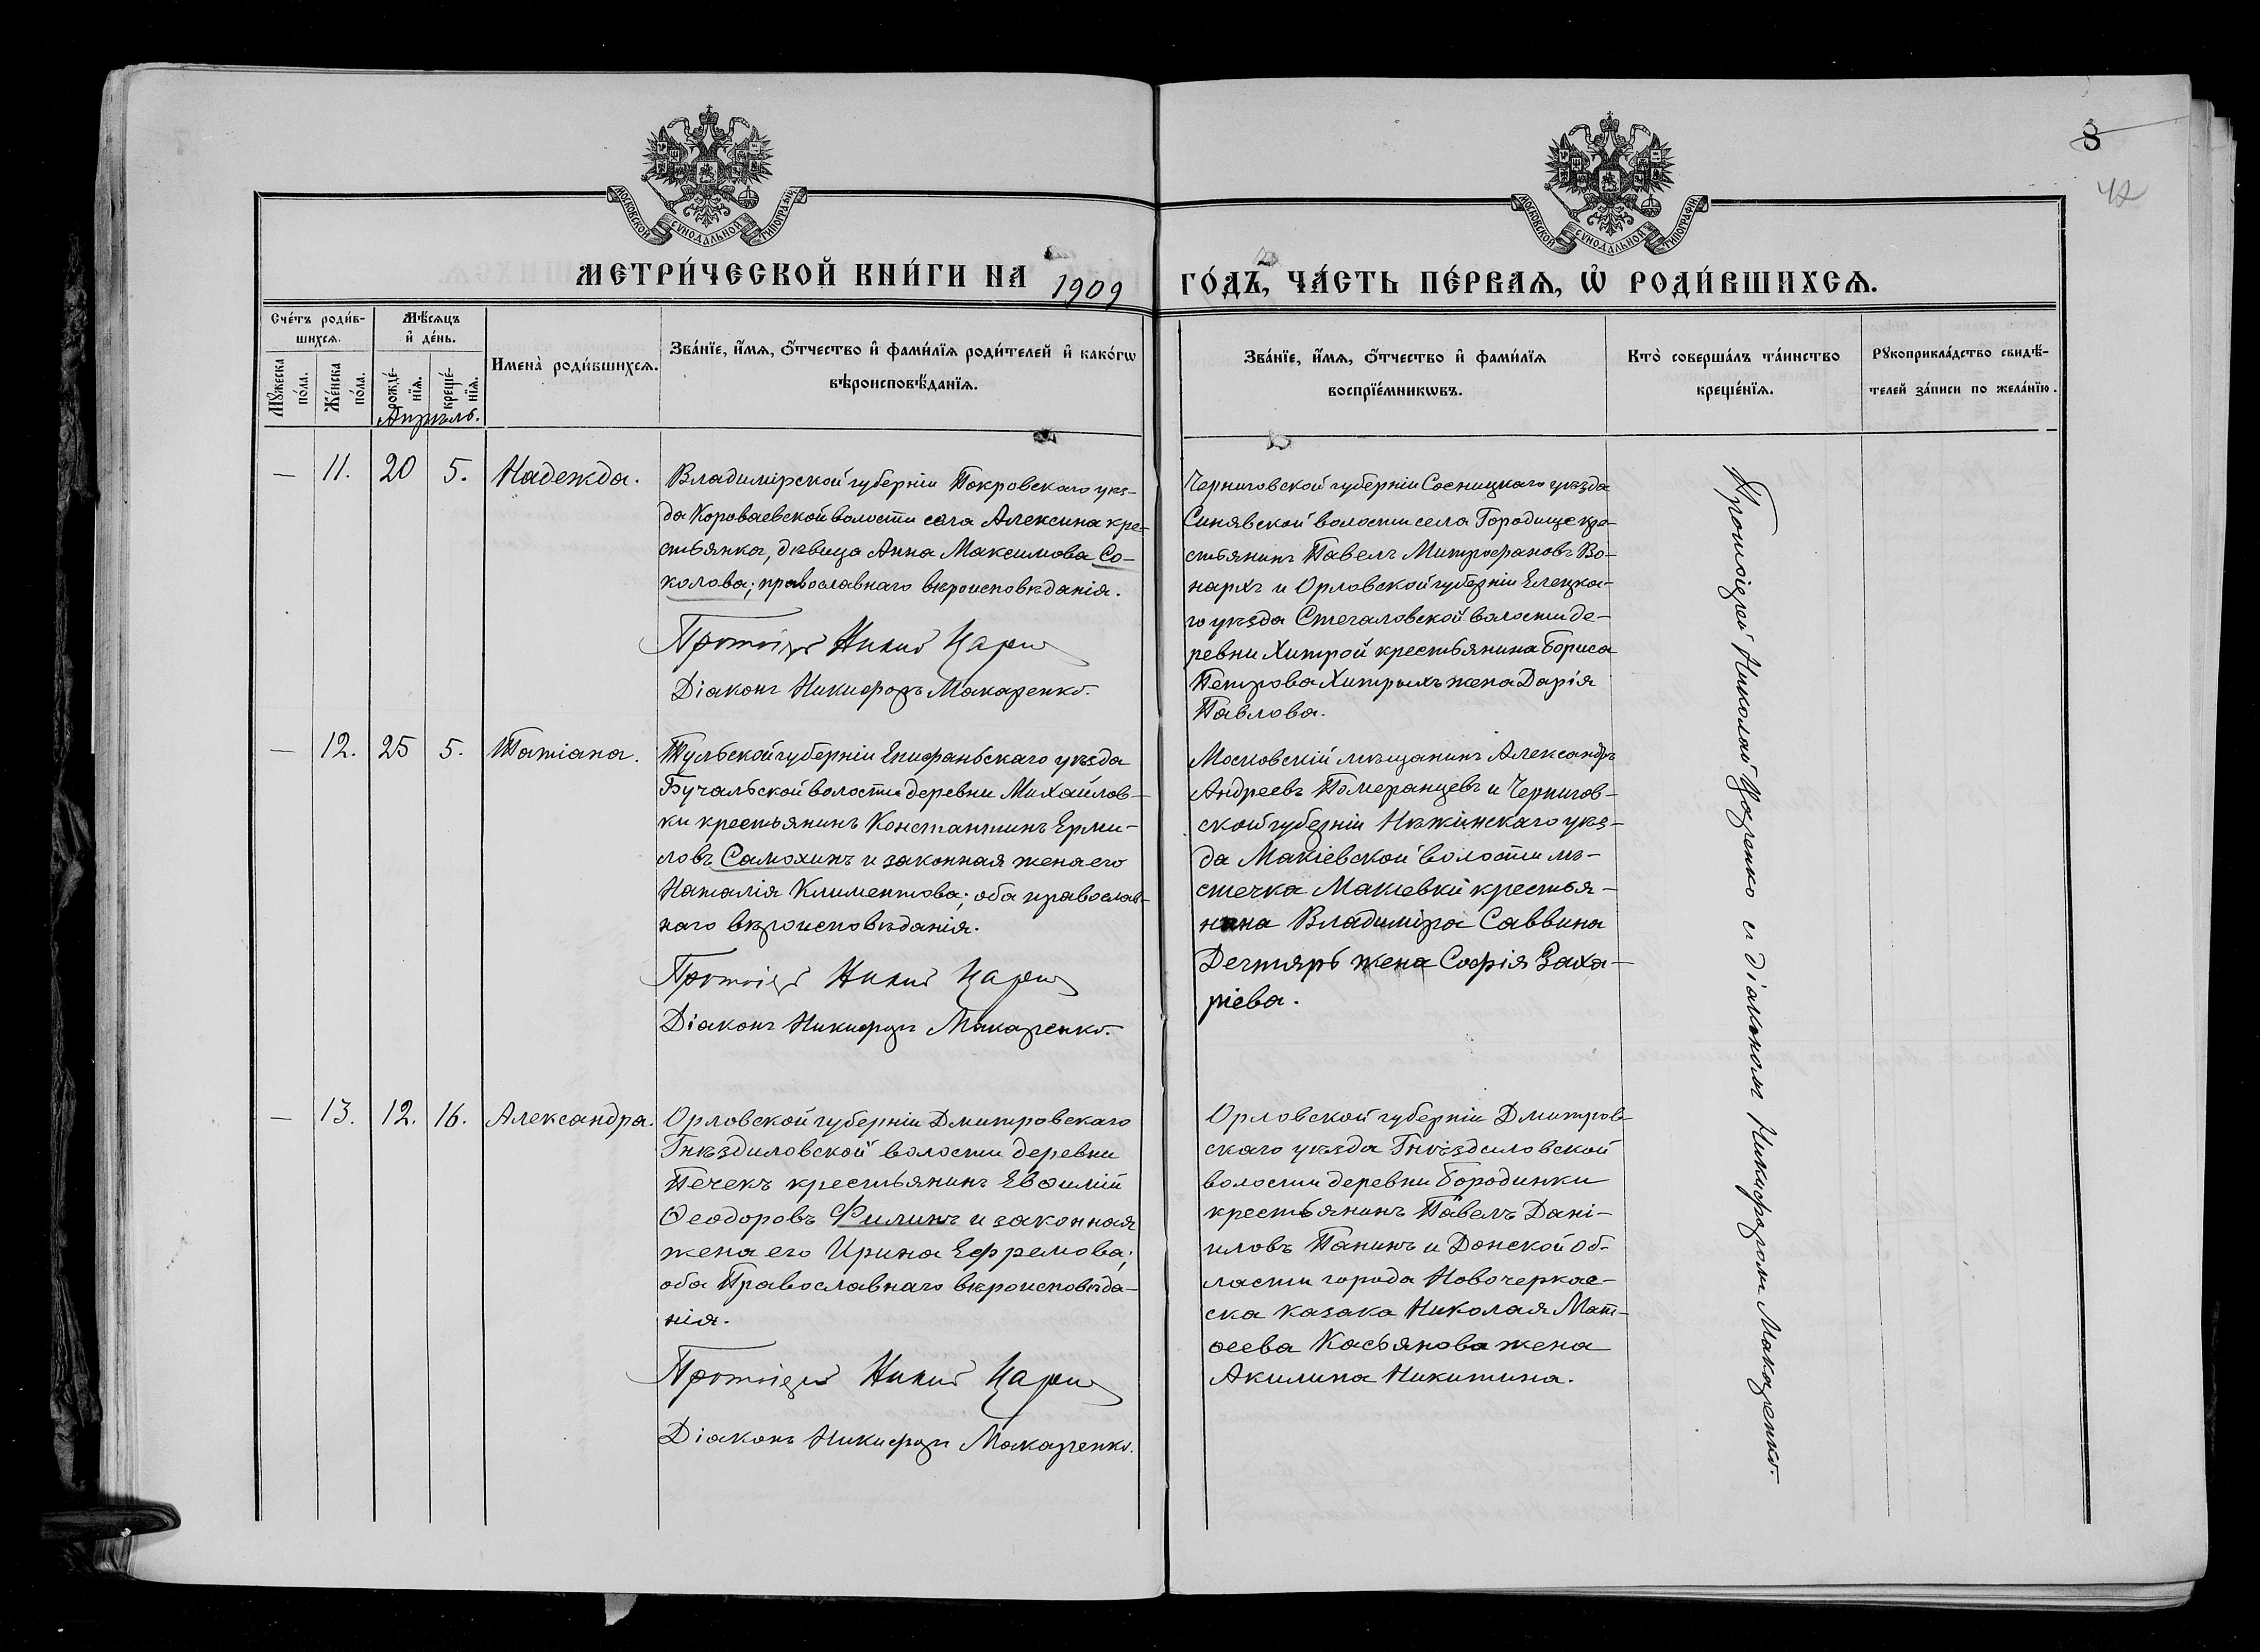 8
42
МОСКОВСКОЙ СѴНОДАЛЬНОЙ ТИПОГРАФІИ
МОСКОВСКОЙ СѴНОДАЛЬНОЙ ТИПОГРАФІИ
МЕТРИ́ЧЕСКОЙ КНИ́ГИ НА 1909 ГО́ДЪ, ЧА́СТЬ ПЕ́РВАѦ, Ѡ҆ РОДИ́ВШИХСѦ.
Сче́тъ роди́в-
шихсѧ.
Мѣ́сѧцъ
и҆ де́нь.
Мꙋ́жеска
по́ла.
Же́нска
по́ла.
рожде́-
нїѧ.
креще́-
нїѧ.
Имена̀ роди́вшихсѧ.
Зва́нїе, и҆́мѧ, ѻ҆́тчество и҆ фами́лїѧ роди́телей и҆ како́гѡ
вѣроисповѣ́данїѧ.
Зва́нїе, и҆́мѧ, ѻ҆́тчество и҆ фами́лїѧ
воспрїе́мникѡвъ.
Кто̀ соверша́лъ та́инство
креще́нїѧ.
Рꙋкоприкла́дство свидѣ́-
телей за́писи по жела́нїю.
Апрѣль.
— 11. 20 5. Надежда.
Владимірской губерніи Покровскаго уѣз-
да Короваевской волости села Алексина кре-
стьянка, дѣвица Анна Максимова Со-
колова; православнаго вѣроисповѣданія.
Протоіерей
Діаконъ Никифоръ Макаренко.
Черниговской губерніи Сосницкаго уѣзда
Синявской волости села Городище кре-
стьянинъ Павелъ Митрофановъ Во-
нархъ и Орловской губерніи Елецка-
го уѣзда Стегаловской волости де-
ревни Хитрой крестьянина Бориса
Петрова Хитрыхъ жена Дарія
Павлова.
— 12. 25 5. Татіана.
Тульской губерніи Епифаньскаго уѣзда
Бучальской волости деревни Михайлов-
ки крестьянинъ Константинъ Ерми-
ловъ Самохинъ и законная жена его
Наталія Климентова; оба православ-
наго вѣроисповѣданія.
Протоіерей
Діаконъ Никифоръ Макаренко.
Московскій мѣщанинъ Александръ
Андреевъ Померанцевъ и Чернигов-
ской губерніи Нѣжинскаго уѣз-
да Макіевской волости мѣ-
стечка Макіевки крестья-
нина Владиміра Саввина
Дегтяръ жена Софія Заха-
ріева.
— 13. 12. 16. Александра.
Орловской губерніи Дмитровскаго
Гнѣздиловской волости деревни
Печекъ крестьянинъ Евѳимій
Ѳеодоровъ Филинъ и законная
жена его Ирина Ефремова;
оба Православнаго вѣроисповѣда-
нія.
Протоіерей
Діаконъ Никифоръ Макаренко.
Орловской губерніи Дмитров-
скаго уѣзда Гнѣздиловской
волости деревни Бородинки
крестьянинъ Павелъ Дані-
иловъ Панинъ и Донской об-
ласти города Новочеркас-
ска казака Николая Мат-
ѳеева Касьянова жена
Акилина Никитина.
Протоіерей Николай и діакономъ Никифоромъ Макаренко.